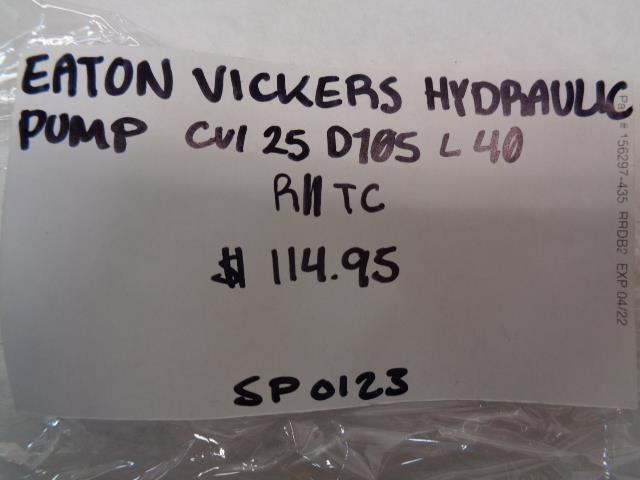 EATON VICKERS HYDRAULIC
PUMP CVI 25 D105 L 40
R11 TC
$ 114.95
SP0123
Part # 156297-435 RRDB2 EXP 04/22